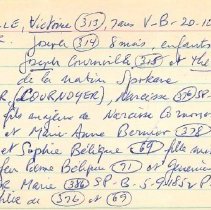 LLE, Victoire (313), 7 ans V-B-20-12
Joseph (314) 8 mois, enfants
Joseph Cournville (315) et The
de la nation Spokane
R (COURNOYER), Narcisse (376) SP-
fils majeur de Narcisse Cornoyer
et Marie Anne Bernier (378)
et Sophie Bélique (69), fille mineure
feu Pierre Béliqu (71) et Genevieve
R Marie (386) SP-B-5-9-1852 P
fille de (376) et (69)